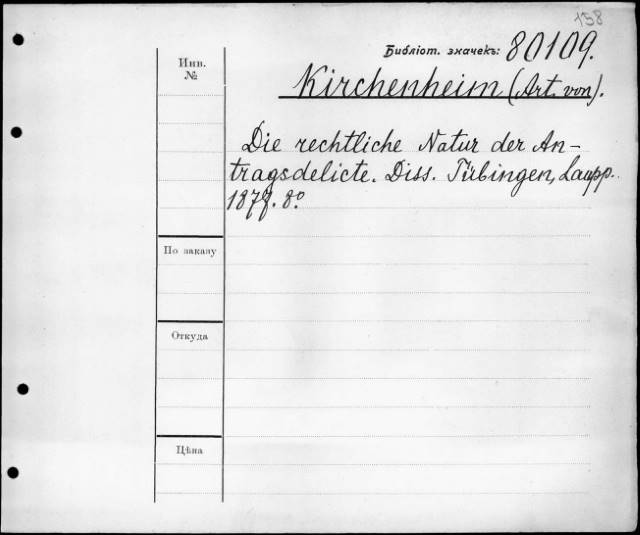 158
Библіот. значекъ: 80109.
Инв.
№
Kirchenheim (Art. von).
Die rechtliche Natur der An-
tragsdelicte. Diss. Tübingen, Laupp.
1877. 8º
По заказу
Откуда
Цѣна